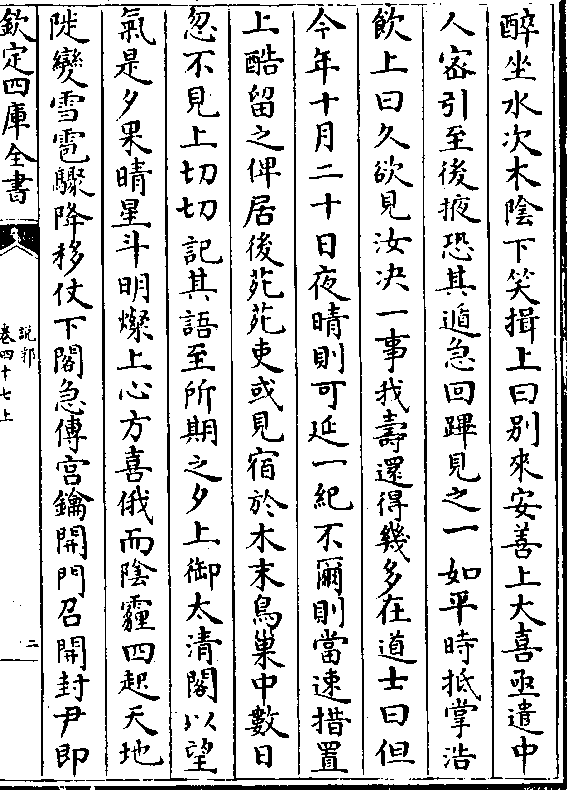 醉坐水次木陰下笑揖上曰别來安善上大喜亟遣中
人宻引至後掖恐其遁急回蹕見之一如平時抵掌浩
飲上曰久欲見汝决一事我壽還得幾多在道士曰但
今年十月二十日夜晴則可延一紀不爾則當速措置
上酷留之俾居後苑苑吏或見宿於木末鳥巢中數日
忽不見上切切記其語至所期之夕上御太清閣以望
氣是夕果晴星斗明燦上心方喜俄而陰霾四起天地
陡變雪雹驟降移仗下閣急傳宫鑰開門召開封尹即
欽定四庫全書
說郛
卷四十七上
二